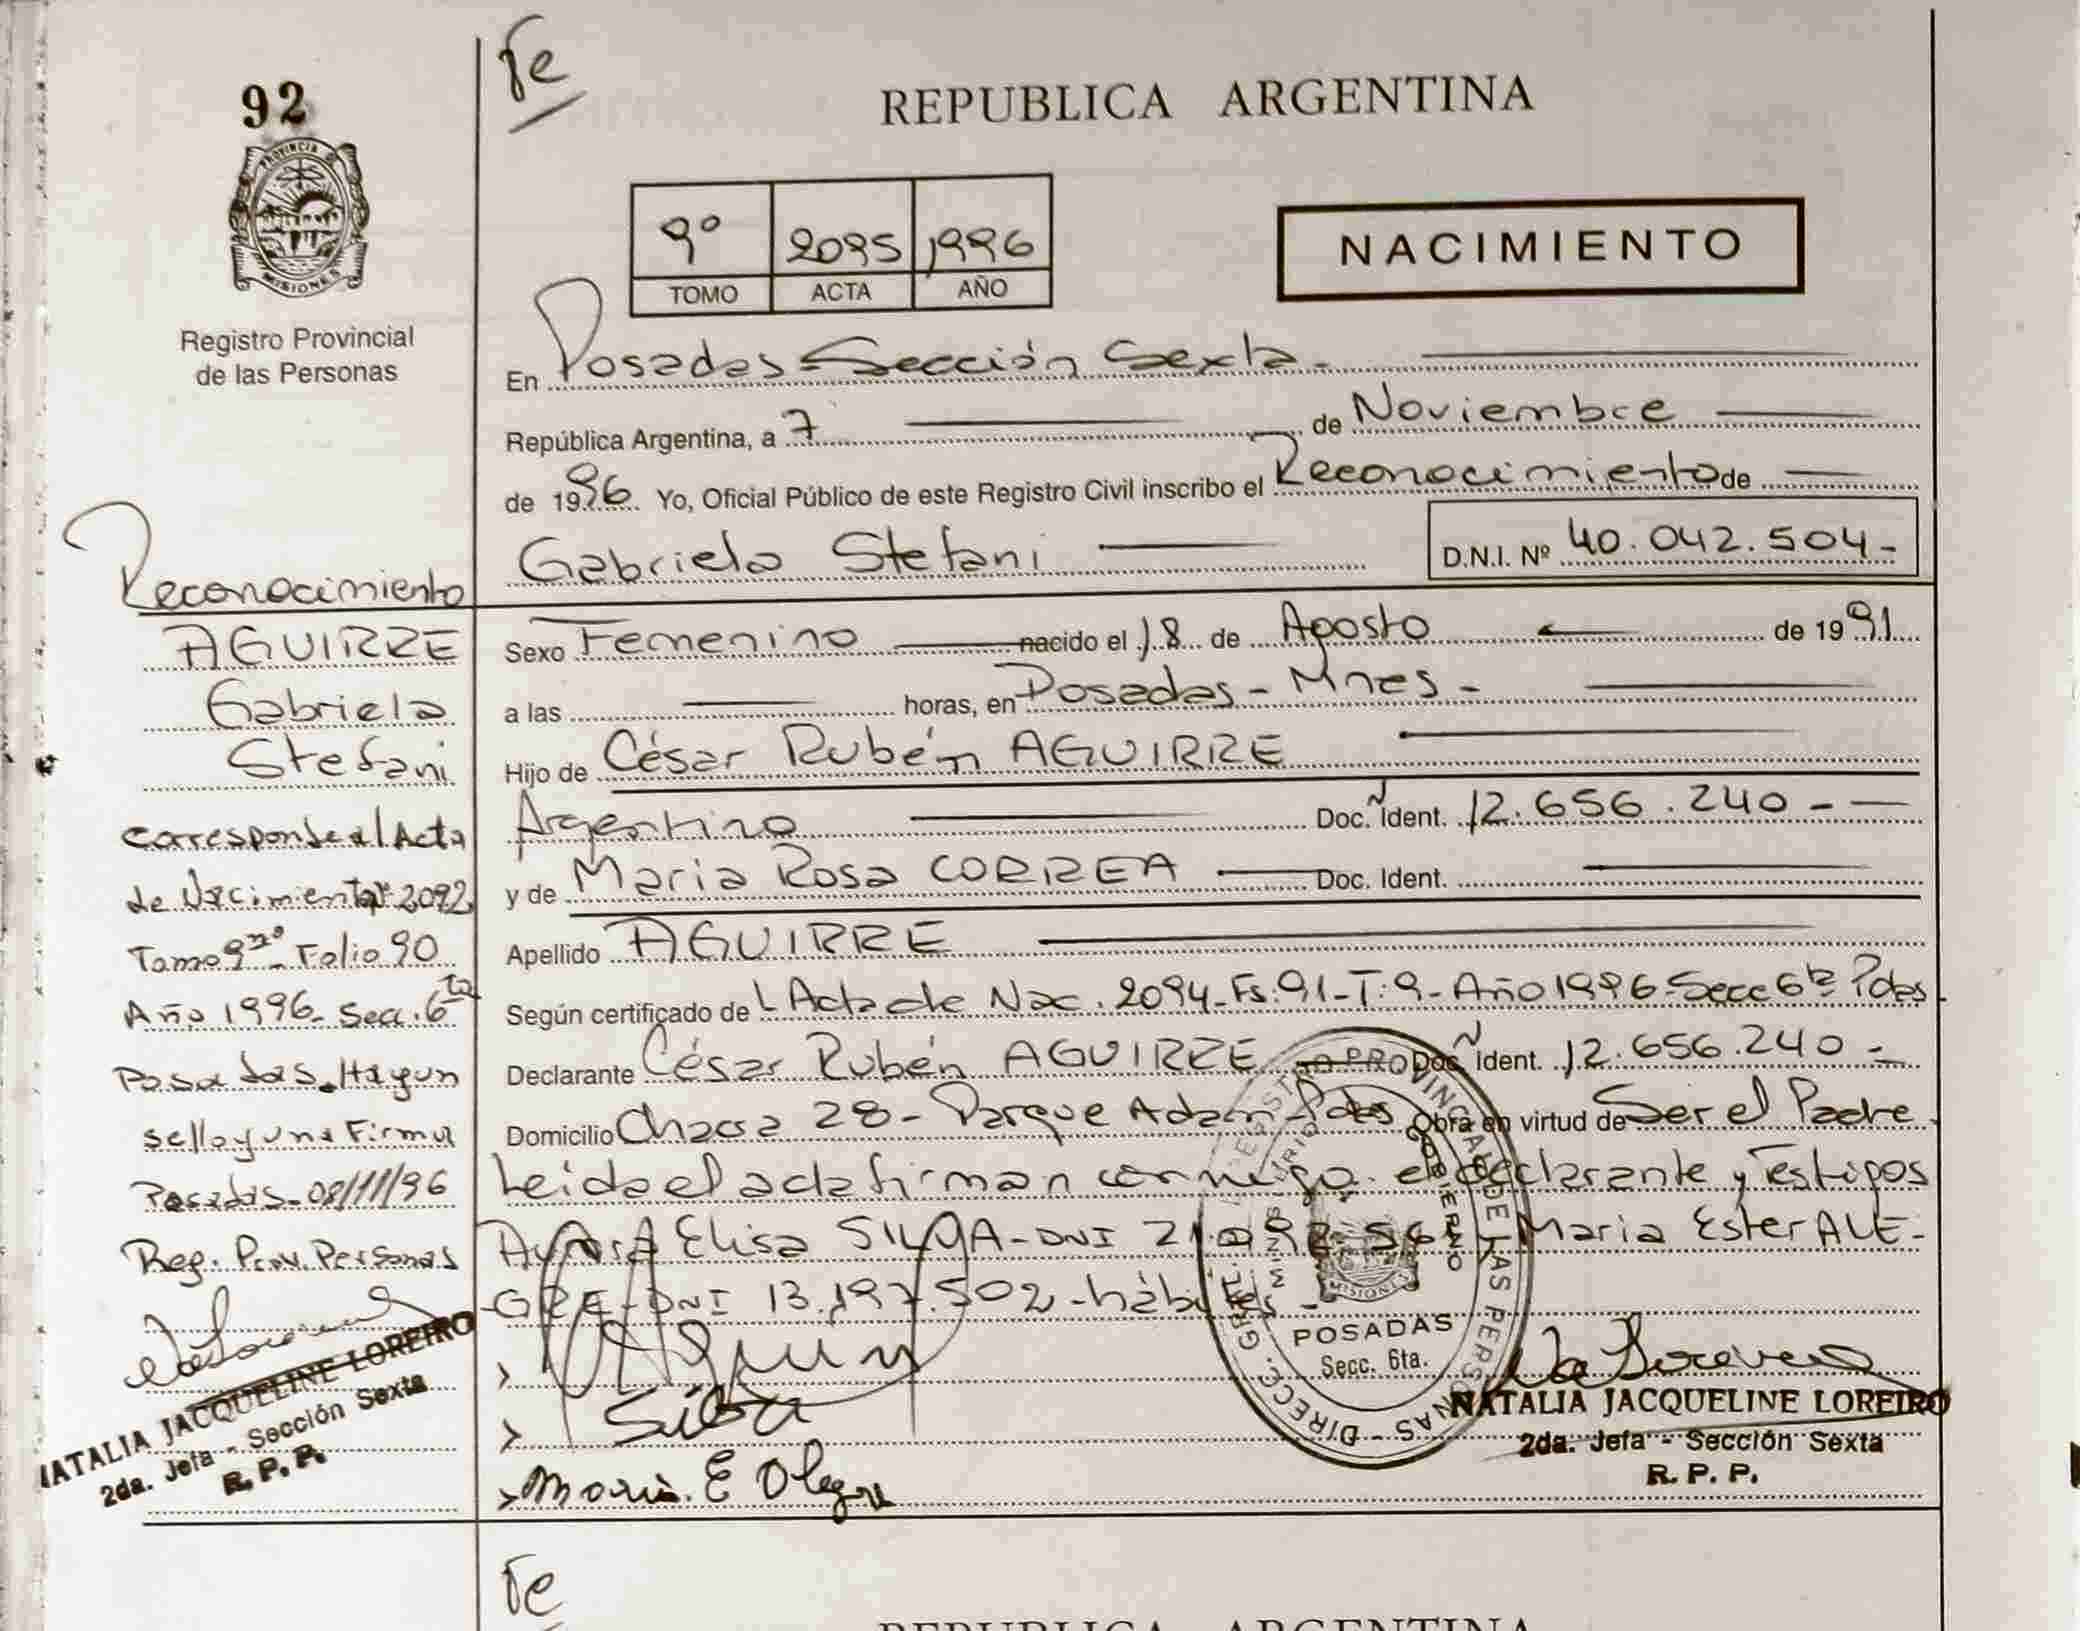 92
PROVINCIA DE
MISIONES
Registro Provincial
de las Personas
Reconocimiento
AGUIRRE
Gabriela
Stefani
Corresponde al Acta
de Nacimiento Nº 2092
Tomo 9no Folio 90
Año 1996 - Secc. 6ta
Posadas. Hay un
sello y una Firma
Posadas - 08/11/96
Reg. Prov. Personas
NATALIA JACQUELINE LOREIRO
2da. Jefa - Sección Sexta
R. P. P.
Te
REPUBLICA ARGENTINA
9º 2095 1996
TOMO ACTA AÑO
NACIMIENTO
En Posadas - Sección Sexta -
República Argentina, a 7 de Noviembre
de 1996 Yo, Oficial Público de este Registro Civil inscribo el Reconocimiento de
Gabriela Stefani D.N.I. Nº 40.042.504 -
Sexo Femenino nacido el 18 de Agosto de 1991
a las horas, en Posadas - Mnes -
Hijo de César Rubén AGUIRRE
Argentino Doc. Ident. 12.656.240 -
y de Maria Rosa CORREA Doc. Ident.
Apellido AGUIRRE
Según certificado de L Acta de Nac. 2094 - Fs: 91 - T: 9 - Año 1996 - Secc 6ta Pdas
Declarante César Rubén AGUIRRE Doc. Ident. 12.656.240 -
Domicilio Chacra 28 - Parque Adam - Pdas Obra en virtud de Ser el Padre
Leida el acta firman conmigo el declarante y Testigos
Elisa SILVA - DNI Maria Ester ALE-
GRE - DNI 13.197.502 - hábiles -
Silva
Maria. E Alegre
POSADAS
Secc. 6ta.
MISIONES
NATALIA JACQUELINE LOREIRO
2da. Jefa - Sección Sexta
R. P. P.
Te
REPUBLICA ARGENTINA